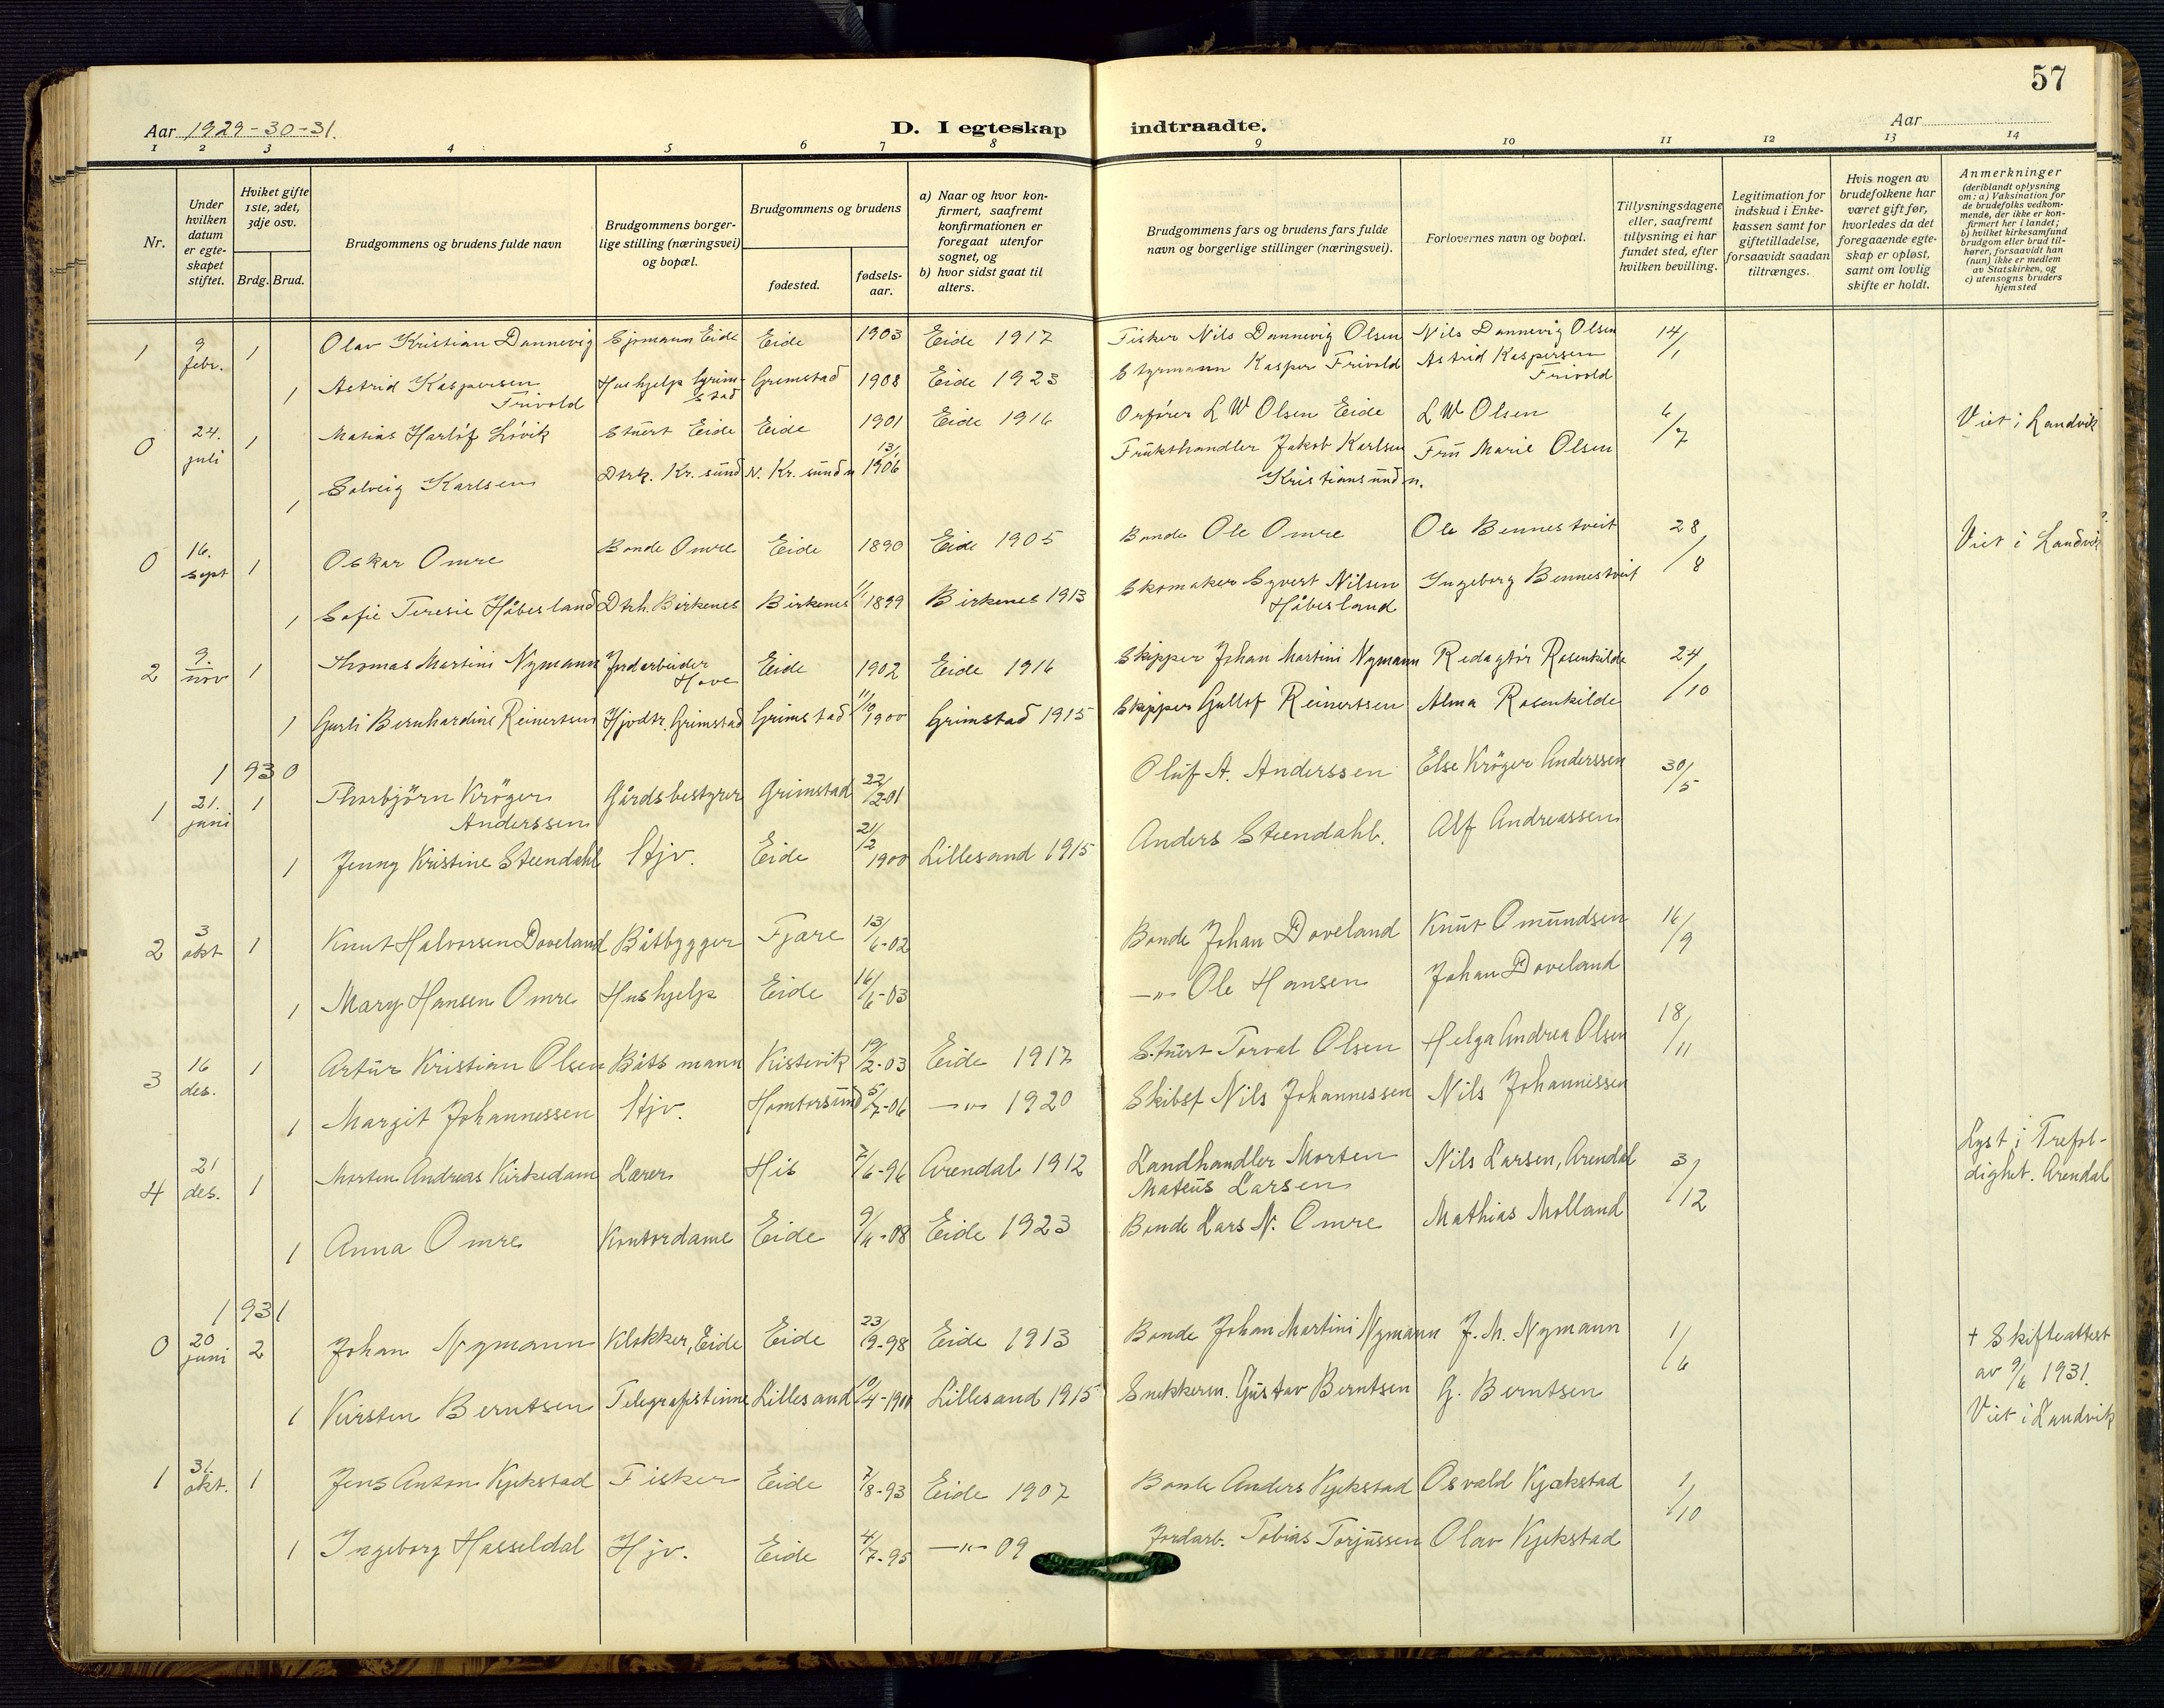 57
Aar 1929-30-31.
D. I egteskap indtraadte.
Aar
1 2 3 4 5 6 7 8 9 10 11 12 13 14
Nr.
Under hvilken datum er egteskapet stiftet.
Hviket gifte 1ste, 2det, 3dje osv.
Brdg. Brud.
Brudgommens og brudens fulde navn
Brudgommens borgerlige stilling (næringsvei) og bopæl.
Brudgommens og brudens
fødested.
fødselsaar.
a) Naar og hvor konfirmert, saafremt konfirmationen er foregaat utenfor sognet, og
b) hvor sidst gaat til alters.
Brudgommens fars og brudens fars fulde navn og borgerlige stillinger (næringsvei).
Forlovernes navn og bopæl.
Tillysningsdagene eller, saafremt tillysning ei har fundet sted, efter hvilken bevilling.
Legitimation for indskud i Enkekassen samt for giftetilladelse, forsaavidt saadan tiltrænges.
Hvis nogen av brudefolkene har været gift før, hvorledes da det foregaaende egteskap er opløst, samt om lovlig skifte er holdt.
Anmerkninger
(deriblandt oplysning om: a) Vaksination for de brudefolks vedkommende, der ikke er konfirmert her i landet; b) hvilket kirkesamfund brudgom eller brud tilhører, forsaavidt han (hun) ikke er medlem av Statskirken, og c) utensogns bruders hjemsted
1 9 febr. 1 Olav Kristian Dannevig Sjømann Eide Eide 1903 Eide 1917 Fisker Nils Dannevig Olsen Nils Dannevig Olsen 14/1
1 Astrid Kaspersen Frivold Hushjelp Grimstad Grimstad 1908 Eide 1923 Styrmann Kasper Frivold Astrid Kaspersen Frivold
0 24. juli 1 Matias Harlof Lövik Stuert Eide Eide 1901 Eide 1916 Ordfører L W Olsen Eide L W Olsen 6/7 Viet i Landvik
1 Solveig Karlsen Dtrh. Kr. sund N. Kr. sund n 13/1 1906 Frukthandler Jakob Karlsen Kristiansund n. Fru Marie Olsen
0 16. sept 1 Oskar Omre Bonde Omre Eide 1890 Eide 1905 Bonde Ole Omre Ole Bennestveit 28/8 Viet i Landvik
1 Sofie Teresie Håbesland Dtrh. Birkenes Birkenes 1/1 1899 Birkenes 1913 Skomaker Syvert Nilsen Håbesland Ingeborg Bennestveit
2 9. nov 1 Thomas Martini Nymann Jordarbeider Hove Eide 1902 Eide 1916 Skipper Johan Martini Nymann Redagtör Rosenkilde 24/10
1 Gurli Bernhardine Reinertsen Hjvdtr. Grimstad Grimstad 11/9 1900 Grimstad 1915 Skipper Gullof Reinertsen Alma Rosenkilde
1930
1 21. juni 1 Thorbjörn Kröger Anderssen Gårdsbestyrer Grimstad 22/2-01 Oluf A. Anderssen Else Kröger Anderssen 30/5
1 Jenny Kristine Steendahl Hjv. Eide 21/2 1900 Lillesand 1915 Anders Steendahl. Alf Andreassen
2 3 okt 1 Knut Halvorsen Doveland Båtbygger Fjære 13/6-02 Bonde Johan Doveland Knut Omundsen 16/9
1 Mary Hansen Omre Hushjelp Eide 16/6-03 —"— Ole Hansen Johan Doveland
3 16 des. 1 Artur Kristian Olsen Båtsmann Kistevik 19/2-03 Eide 1917 Stuert Torval Olsen Helga Andrea Olsen 18/11
1 Margit Johannessen Hjv. Homborsund 5/7-06 —"— 1920 Skibsf Nils Johannessen Nils Johannissen
4 21 des. 1 Morten Andreas Kirkedam Lærer His 7/6-96 Arendal 1912 Landhandler Morten Mateus Larsen Nils Larsen, Arendal 3/12 Lyst i Trefoldighet. Arendal
1 Anna Omre Kontordame Eide 9/6-08 Eide 1923 Bonde Lars N. Omre Mathias Molland
1931
0 20 juni 2 Johan Nymann Klokker, Eide Eide 23/9-98 Eide 1913 Bonde Johan Martini Nymann J. M. Nymann 1/6 + Skifteattest av 9/6 1931. Viet i Landvik
1 Kirsten Berntsen Telegrafistinne Lillesand 10/4-1900 Lillesand 1915 Snekkerm. Gustav Berntsen G. Berntsen
1 31. okt. 1 Jens Anton Kjekstad Fisker Eide 7/8-93 Eide 1907 Bonde Anders Kjekstad Osvald Kjækstad 1/10
1 Ingeborg Hasseldal Hjv. Eide 4/7-95 —"— 09 Jordarb. Tobias Torjussen Olav Kjekstad